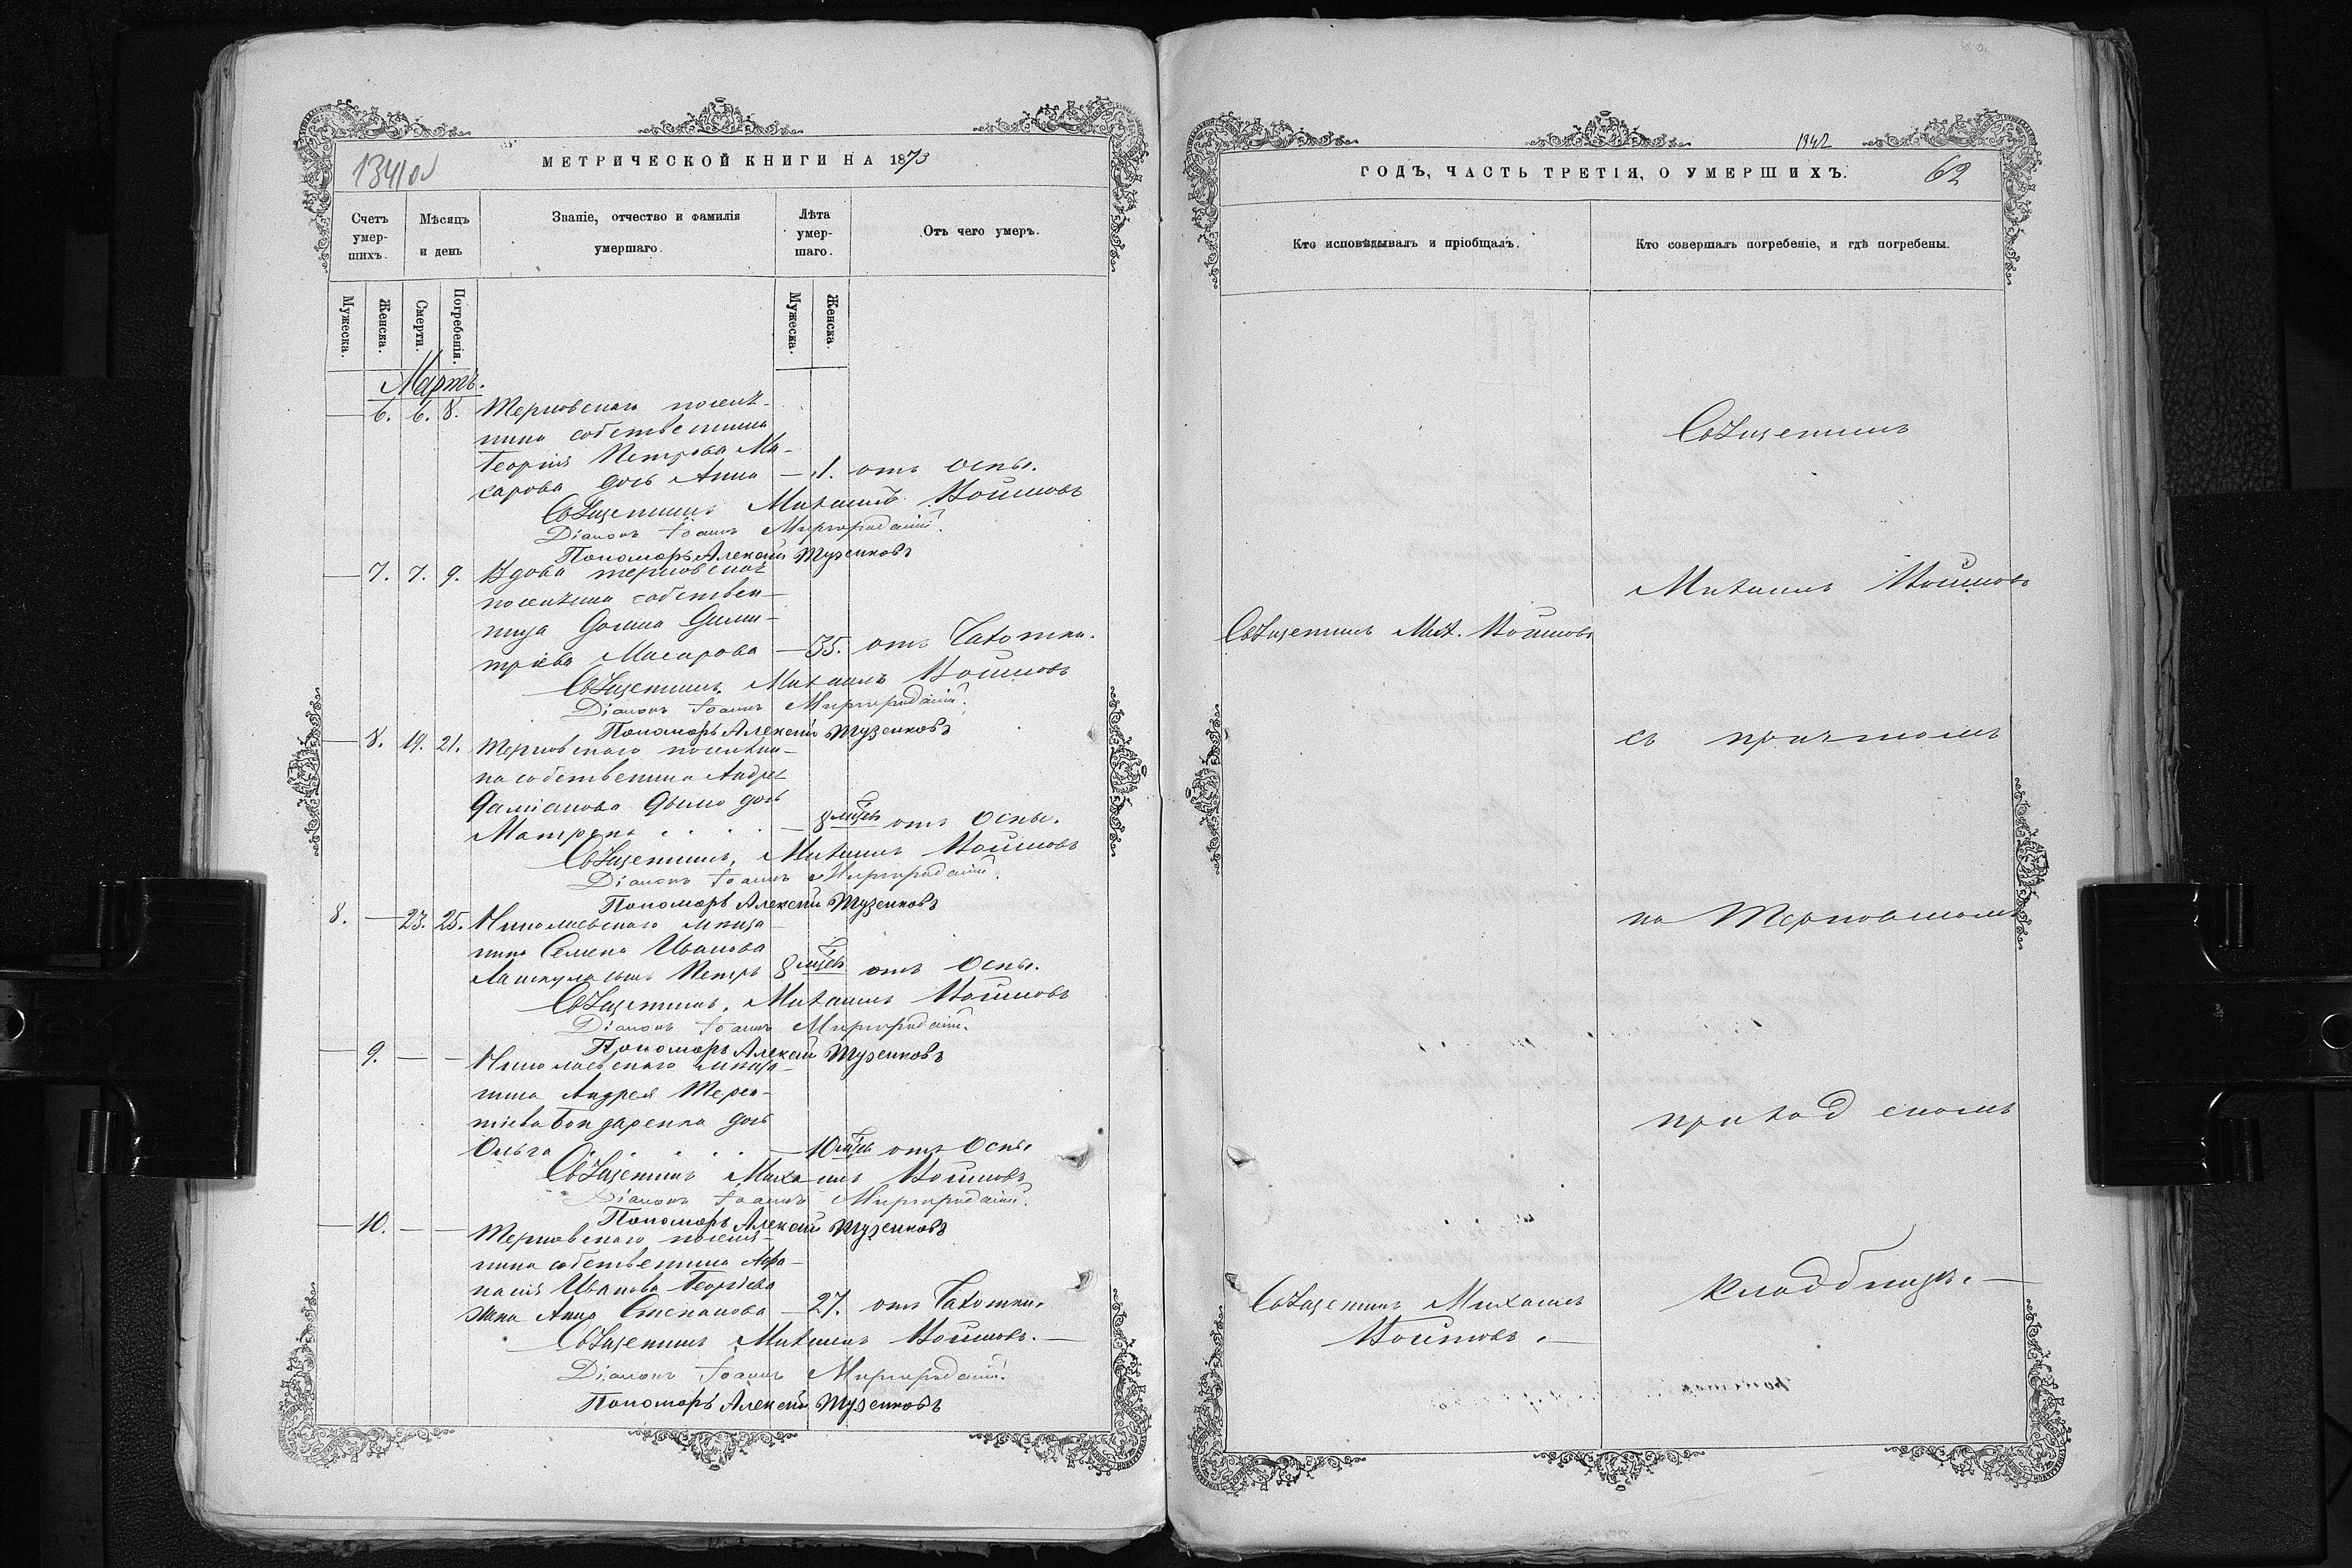 1341об
МЕТРИЧЕСКОЙ КНИГИ НА 1873
Счетъ умер-шихъ.
Мѣсяцъ и день
Званіе, отчество и фамилія умершаго.
Лѣта умер-шаго.
Отъ чего умеръ.
Мужеска.
Женска.
Смерти.
Погребенія.
Мужеска.
Женска.
Мартъ.
6. 6. 8. Терновскаго поселя-
нина собственника
Георгія Петрова Ма-
карова дочь Анна — 1. отъ Оспы.
Священникъ Михаилъ Войновъ
Діаконъ Іоаннъ Миргородскій.
Пономарь Алексѣй Тузенковъ
7. 7. 9. Вдова терновская
поселянка собствен-
ница Домна Дими-
тріева Макарова — 35. отъ Чахотки.
Священникъ Михаилъ Войновъ
Діаконъ Іоаннъ Миргородскій.
Пономарь Алексѣй Тузенковъ
8. 19. 21. Терновскаго поселяни-
на собственника Андрея
Даміанова дочь
Матрена . . . . — 8 мѣсяц отъ Оспы.
Священникъ, Михаилъ Войновъ
Діаконъ Іоаннъ Миргородскій.
Пономарь Алексѣй Тузенковъ
8. — 23. 25. Николаевскаго мѣща-
нина Семена Иванова
сынъ Петръ 8 мѣсяц отъ Оспы.
Священникъ, Михаилъ Войновъ
Діаконъ Іоаннъ Миргородскій.
Пономарь Алексѣй Тузенковъ
— 9. — — Николаевскаго мѣща-
нина Андрея Терен-
тіева Бондаренка дочь
Ольга . . . . — 10 мѣсяц отъ Оспы
Священникъ Михаилъ Войновъ
Діаконъ Іоаннъ Миргородскій.
Пономарь Алексѣй Тузенковъ
— 10. — — Терновскаго поселя-
нина собственника Афа-
насія Иванова Георгіева
жена Анна Степанова — 27. отъ Чахотки.
Священникъ Михаилъ Войновъ. —
Діаконъ Іоаннъ Миргородскій.
Пономарь Алексѣй Тузенковъ
1342
ГОДЪ, ЧАСТЬ ТРЕТІЯ, О УМЕРШИХЪ.
62
Кто исповѣдывалъ и пріобщалъ.
Кто совершалъ погребеніе, и гдѣ погребены.
Священникъ
Михаилъ Войновъ
Священникъ Мих. Войновъ
съ причтомъ
на Терновскомъ
приходскомъ
кладбищѣ. —
Священникъ Михаилъ
Войновъ. —